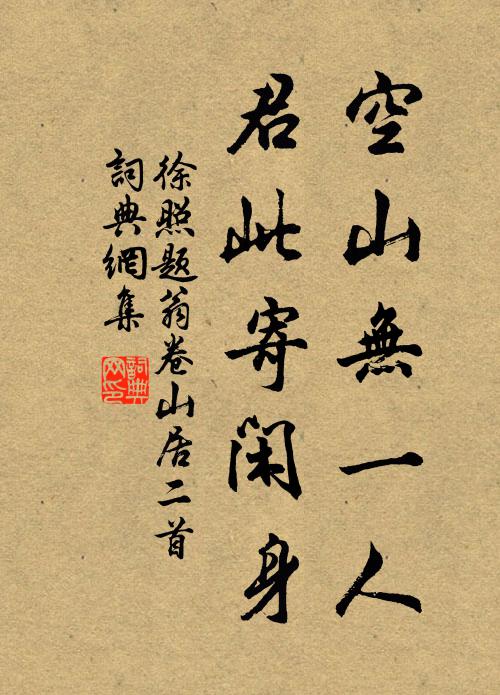 空山無一人
君此寄閑身
徐照題翁卷山居二首
詞典網集
詞典網印